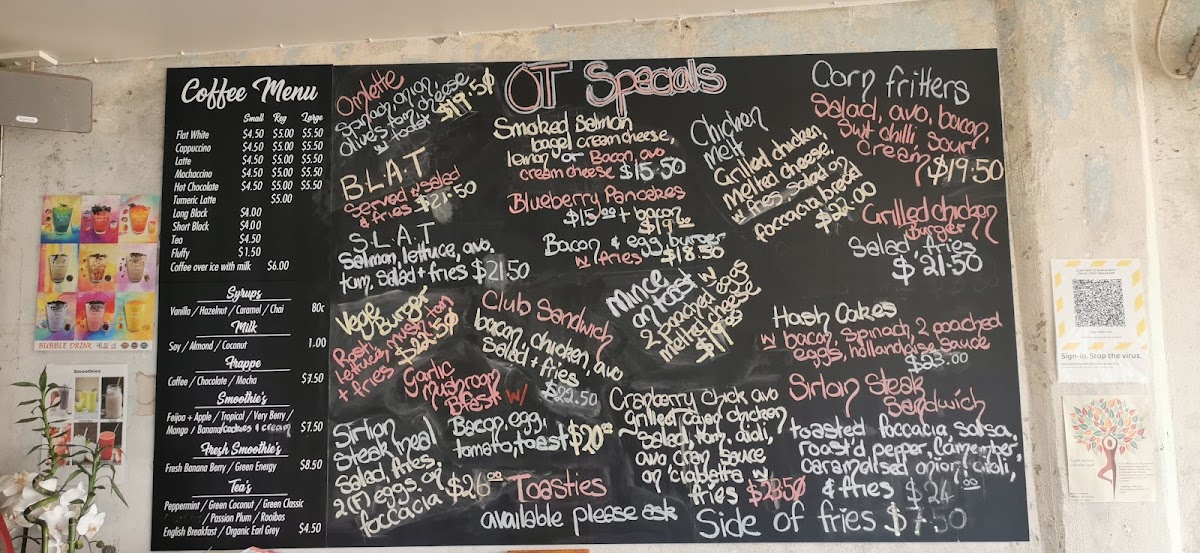 Coffee Menu
Small Reg Large
Flat White $4.50 $5.00 $5.50
Cappuccino $4.50 $5.00 $5.50
Latte $4.50 $5.00 $5.50
Mochaccino $4.50 $5.00 $5.50
Hot Chocolate $4.50 $5.00 $5.50
Tumeric Latte $5.00
Long Black $4.00
Short Black $4.00
Tea $4.50
Fluffy $1.50
Coffee over ice with milk $6.00
Syrups
Vanilla / Hazelnut / Caramel / Chai 80c
Milk
Soy / Almond / Coconut 1.00
Frappe
Coffee / Chocolate / Mocha $7.50
Smoothie's
Feijoa + Apple / Tropical / Very Berry /
Mango / Banana/cookies & cream $7.50
Fresh Smoothie's
Fresh Banana Berry / Green Energy $8.50
Tea's
Peppermint / Green Coconut / Green Classic
/ Passion Plum / Rooibos
English Breakfast / Organic Earl Grey $4.50
OT Specials
Omlette
Spinach, onion
olive's, tom, cheese
w toast $19.50
B.L.A.T
Served w salad
& fries $21.50
S.L.A.T
Salmon, lettuce, avo,
tom, salad + fries $21.50
Vege
Burger
lettuce,
+ fries
Sirlion
Steak meal
Salad, fries,
2(f) eggs, on
foccacia $26.00
Smoked Salmon
bagel cream cheese,
lemon or Bacon, avo
cream cheese $15.50
Blueberry Pancakes
$15.00 + bacon
Bacon & egg burger
w fries $18.50
Club Sandwich
bacon, chicken, avo
Salad + fries
$22.50
Garlic
mushroom
Brast w/
Bacon, egg,
tomato, toast $20.00
Toasties
available please ask
Chicken
melt
Grilled chicken,
Melted cheese,
w fries, salad on
foccacia bread
$22.00
mince w
on toast
2 poached eggs
melted cheese
Cranberry chick avo
Grilled cajon chicken
Salad, tom, aioli,
avo cran sauce
on ciabatta w
fries $23.50
Corn fritters
Salad, avo, bacon,
Swt chilli, sour
cream $19.50
Grilled chicken
Burger
Salad, fries
$21.50
Hash Cakes
w bacon, Spinach, 2 poached
eggs, hollandaise sauce
$23.00
Sirloin Steak
Sandwich
toasted foccacia, salsa,
roast'd pepper, camember,
caramelised onion, aioli,
& fries $24.00
Side of fries $7.50
BUBBLE DRINK
Smoothies
Sign-in. Stop the virus.